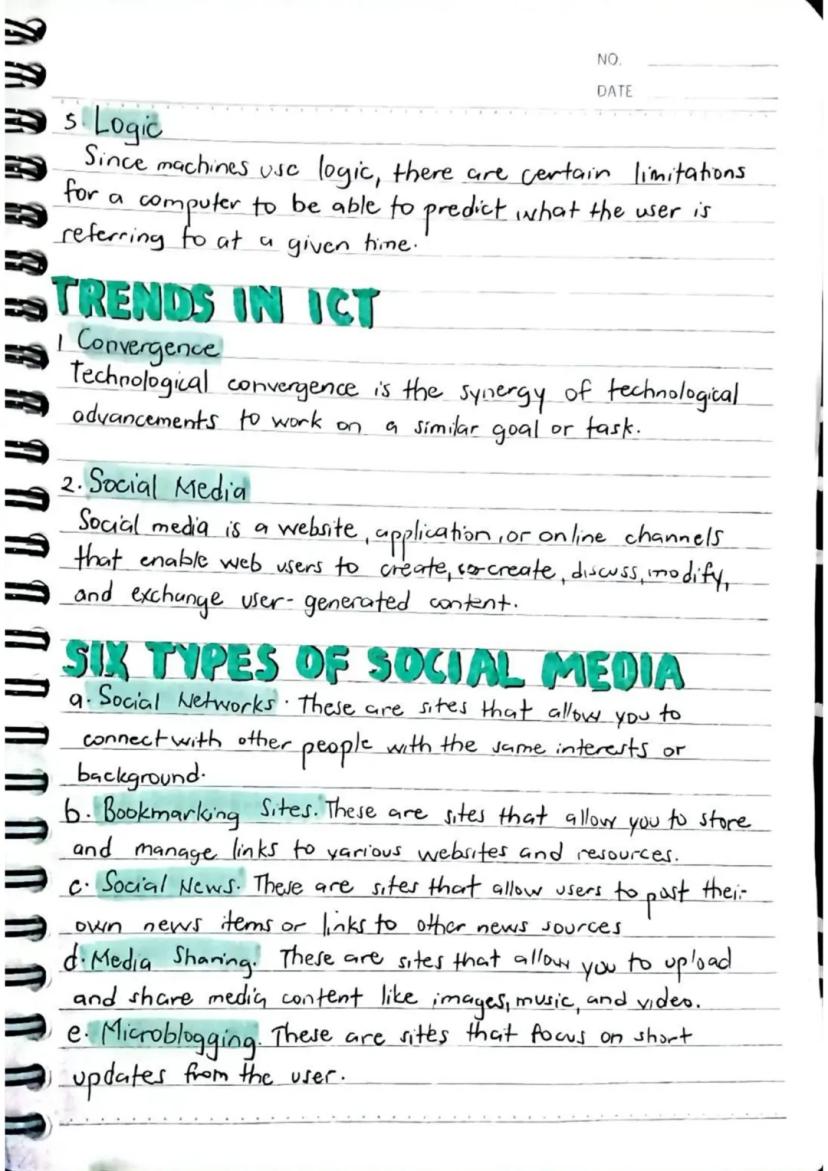 NO.
DATE
5 Logic
Since machines use logic, there are certain limitations
for a computer to be able to predict what the user is
referring to at a given time.
TRENDS IN ICT
1 Convergence
Technological convergence is the synergy of technological
advancements to work on a similar goal or task.
2. Social Media
Social media is a website, application, or online channels
that enable web users to create, co-create, discuss, modify,
and exchange user-generated content.
SIX TYPES OF SOCIAL MEDIA
a. Social Networks. These are sites that allow you to
connect with other people with the same interests or
background.
b. Bookmarking Sites. These are sites that allow you to store
and manage links to various websites and resources.
c. Social News. These are sites that allow users to post their
own news items or links to other news sources
d. Media Sharing. These are sites that allow you to upload
and share media content like images, music, and video.
e. Microblogging. These are sites that focus on short
updates from the user.